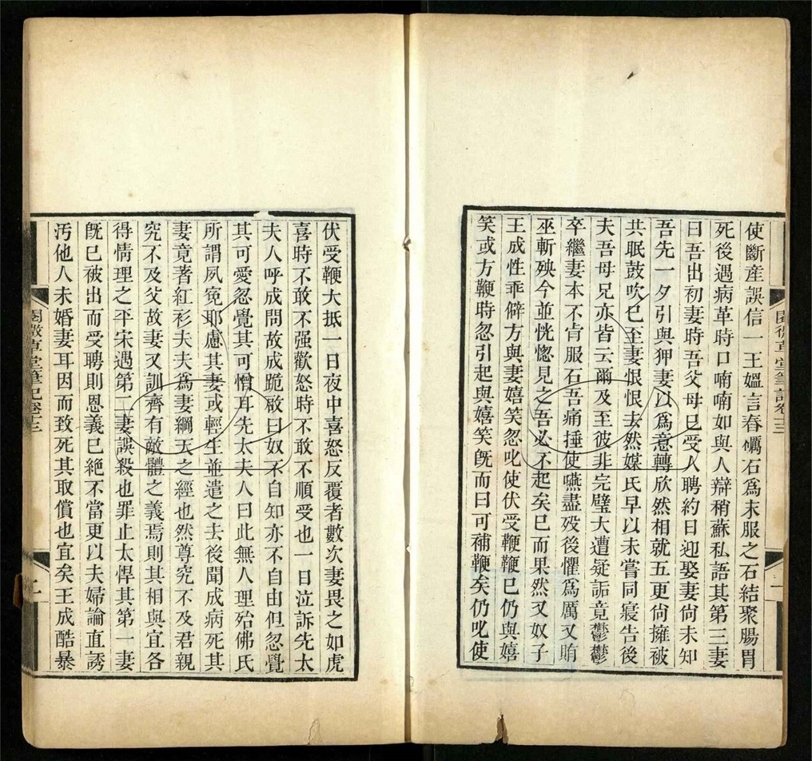 使斷産誤信一王媼言舂礪石爲末服之石結聚腸胃
死後遇病革時口喃喃如與人辯稍蘇私語其第三妻
曰吾出初妻時吾父母已受人聘約日迎娶妻尚未知
吾先一夕引與狎妻以爲意轉欣然相就五更尚擁被
共眠鼓吹已至妻恨恨去然媒氏早以未嘗同寢告後
夫吾母兄亦皆云爾及至彼非完璧大遭疑詬竟鬱鬱
卒繼妻本不肯服石吾痛捶使嚥盡歿後懼爲厲又賄
巫斬殃今並恍惚見之吾必不起矣已而果然又奴子
王成性乖僻方與妻嬉笑忽叱使伏受鞭鞭已仍與嬉
笑或方鞭時忽引起與嬉笑旣而曰可補鞭矣仍叱使
閱微草堂筆記卷二三
二
伏受鞭大抵一日夜中喜怒反覆者數次妻畏之如虎
喜時不敢不强歡怒時不敢不順受也一日泣訴先太
夫人呼成問故成跪啟曰奴不自知亦不自由但忽覺
其可愛忽覺其可憎耳先太夫人曰此無人理殆佛氏
所謂夙寃耶慮其妻或輕生並遣之去後聞成病死其
妻竟著紅衫夫夫爲妻綱天之經也然尊究不及君親
究不及父故妻又訓齊有敵體之義焉則其相與宜各
得情理之平宋遇第二妻誤殺也罪止太悍其第一妻
旣已被出而受聘則恩義已絶不當更以夫婦論直誘
汚他人未婚妻耳因而致死其取償也宜矣王成酷暴
閱微草堂筆記卷二三
二